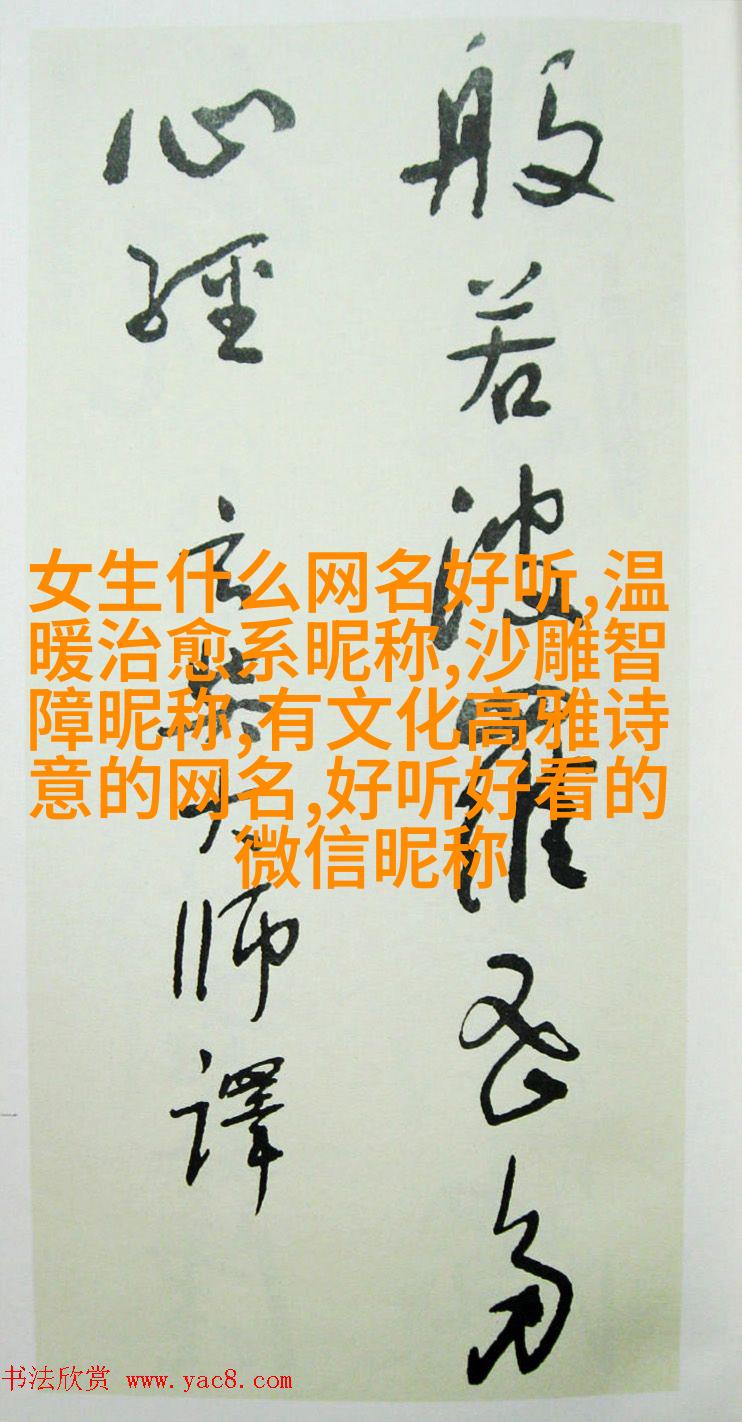 般若波羅密多
心經 玄奘大師譯
女生什么网名好听,温
暖治愈系昵称,沙雕智
障昵称,有文化高雅诗
意的网名,好听好看的
微信昵称
书法欣赏 www.yac8.com